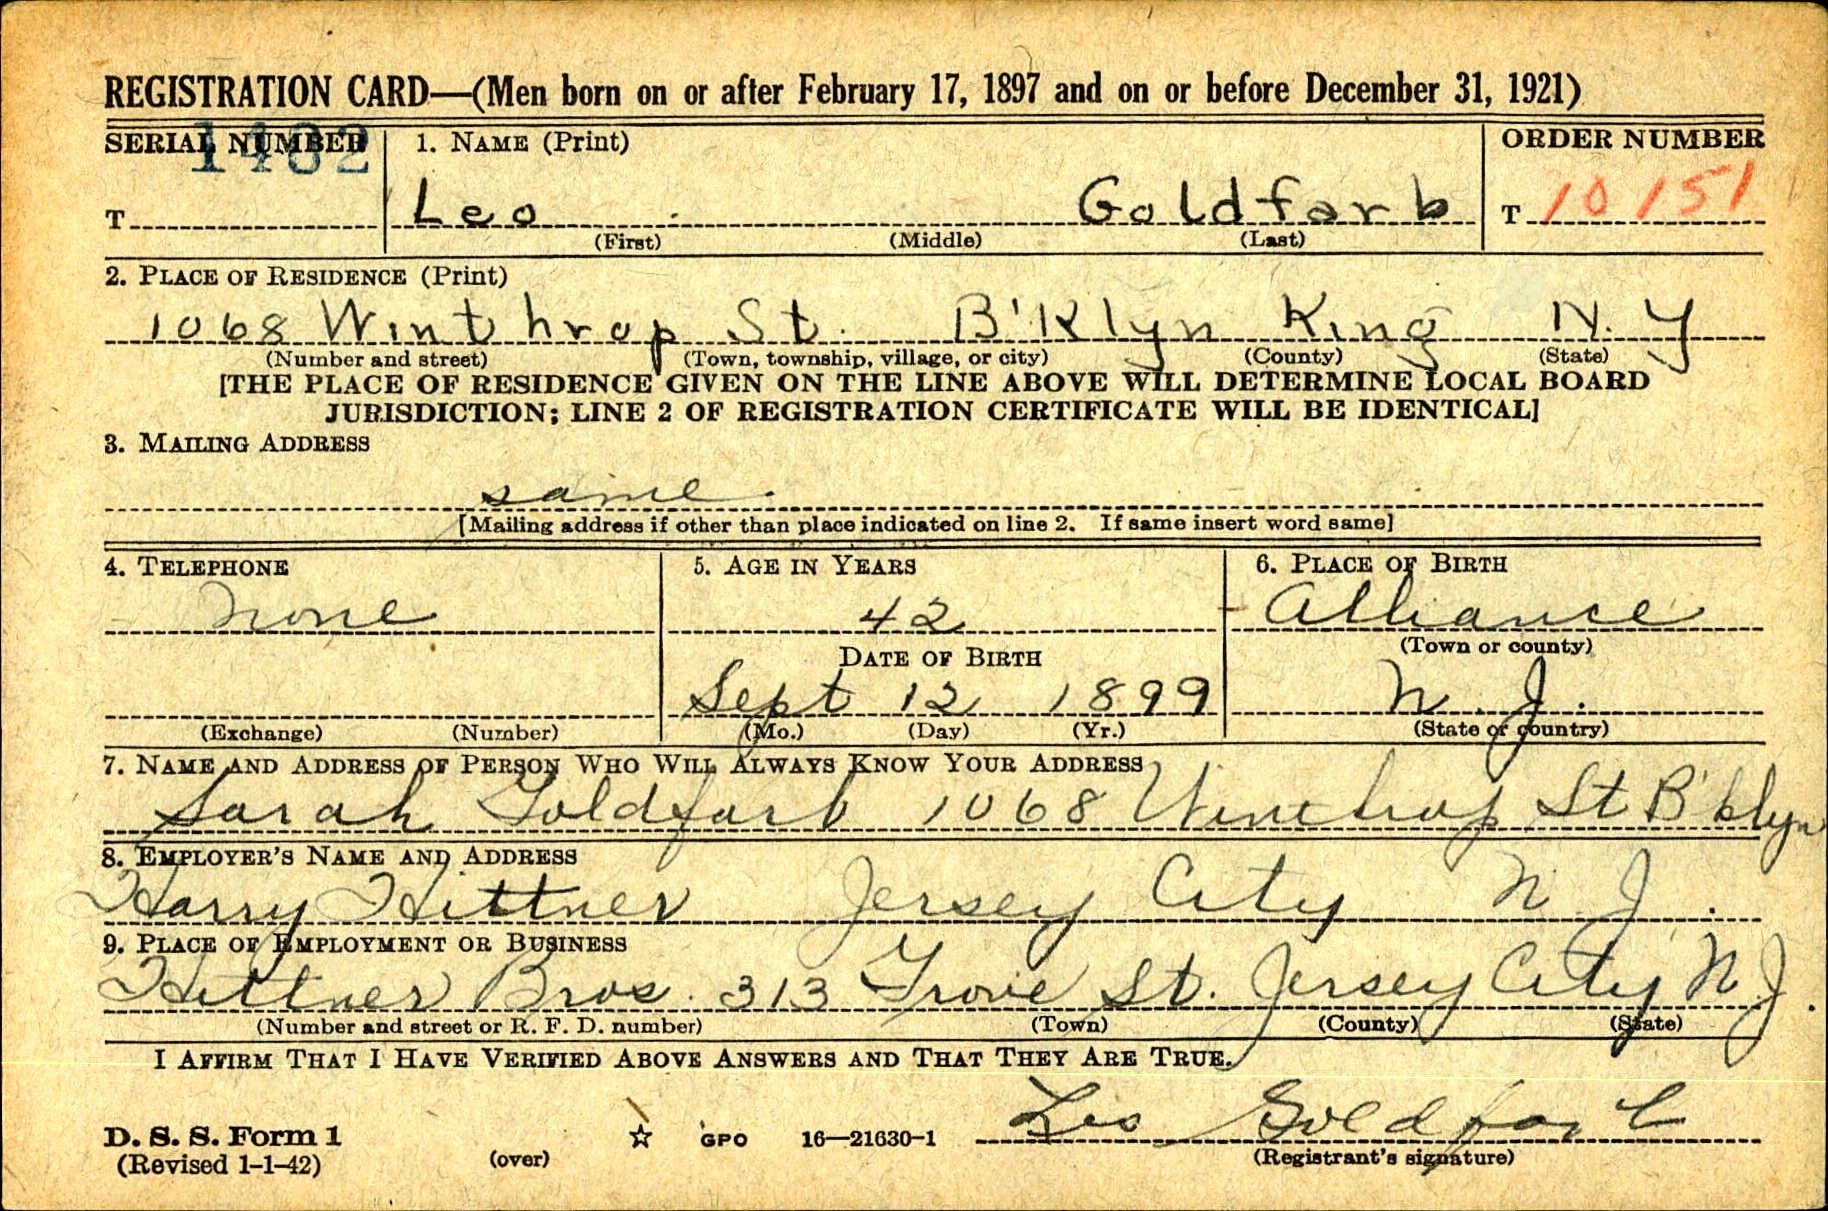 REGISTRATION CARD—(Men born on or after February 17, 1897 and on or before December 31, 1921)
SERIAL NUMBER 1. NAME (Print) ORDER NUMBER
T Leo Goldfarb T 10151
(First) (Middle) (Last)
2. PLACE OF RESIDENCE (Print)
1068 Winthrop St. B'Klyn King N. Y
(Number and street) (Town, township, village, or city) (County) (State)
[THE PLACE OF RESIDENCE GIVEN ON THE LINE ABOVE WILL DETERMINE LOCAL BOARD
JURISDICTION; LINE 2 OF REGISTRATION CERTIFICATE WILL BE IDENTICAL]
3. MAILING ADDRESS
same.
[Mailing address if other than place indicated on line 2. If same insert word same]
4. TELEPHONE 5. AGE IN YEARS 6. PLACE OF BIRTH
none 42 Alliance
(Town or county)
DATE OF BIRTH
Sept 12 1899 N. J.
(Exchange) (Number) (Mo.) (Day) (Yr.) (State or country)
7. NAME AND ADDRESS OF PERSON WHO WILL ALWAYS KNOW YOUR ADDRESS
Sarah Goldfarb 1068 Winthrop St B'klyn
8. EMPLOYER'S NAME AND ADDRESS
Harry Hittner Jersey City N. J.
9. PLACE OF EMPLOYMENT OR BUSINESS
Hittner Bros. 313 Grove St. Jersey City N J.
(Number and street or R. F. D. number) (Town) (County) (State)
I AFFIRM THAT I HAVE VERIFIED ABOVE ANSWERS AND THAT THEY ARE TRUE.
Leo Goldfarb
D. S. S. Form 1 GPO 16—21630-1
(Revised 1-1-42) (over) (Registrant's signature)